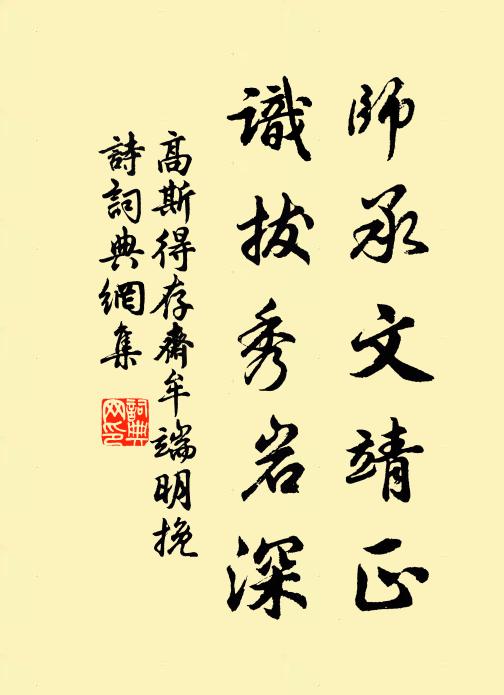 師承文靖正
識拔秀岩深
高斯得存齋牟端明挽
詩詞典網集
詞典
网印